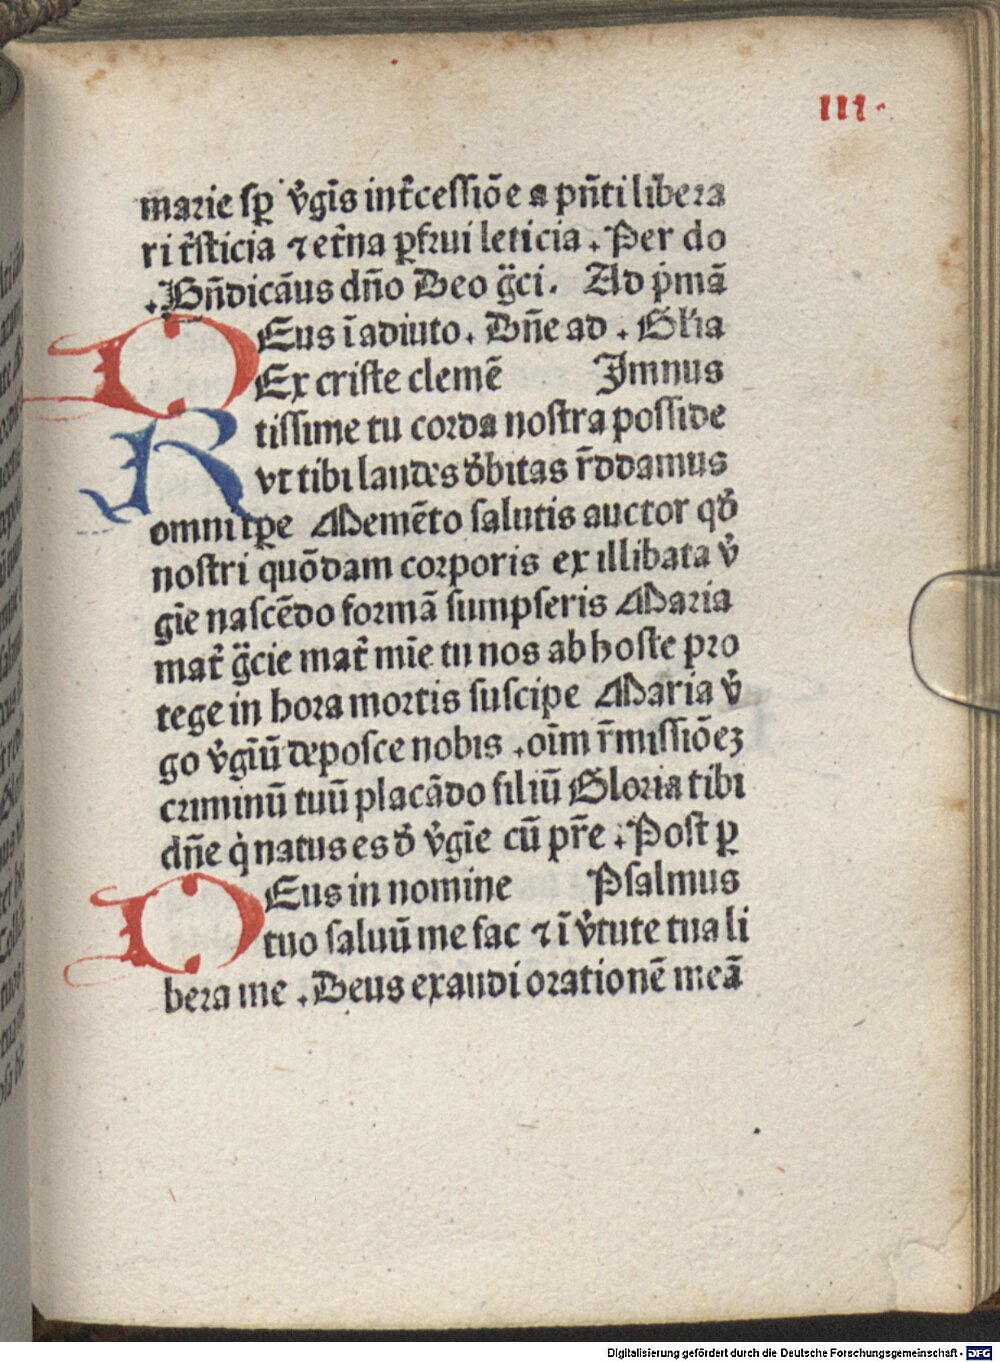 III·
marie ſꝑ v̓gĩs int̃ceſſiõe a pñti libera
ri t̃ſticia ⁊ et̃na ꝑfrui leticia . Per do
.Bñdicãus dño Deo g̃ci . Ad p̓mã
DEus ĩ adiuto . Dñe ad . Gl̃ia
Ex criſte clemẽ Jmnus
Rtiſſime tu corda noſtra poſſide
vt tibi laudes d̓bitas r̃ddamus
omni tꝑe Memẽto ſalutis auctor qd̓
noſtri quõdam corporis ex illibata v̓
gĩe naſcẽdo formã ſumpſeris Maria
mat̃ g̃cie mat̃ mĩe tu nos ab hoſte pro
tege in hora mortis ſuſcipe Maria v̓
go v̓gĩũ depoſce nobis . oĩm r̃miſſiõeʒ
criminũ tuũ placãdo filiũ Gloria tibi
dñe q̓ natus es d̓ v̓gĩe cũ pr̃e . Poſt ꝑ
DEus in nomine Pſalmus
tuo ſaluũ me fac ⁊ ĩ v̓tute tua li
bera me . Deus exaudi orationẽ meã
Digitalisierung gefördert durch die Deutsche Forschungsgemeinschaft - DFG